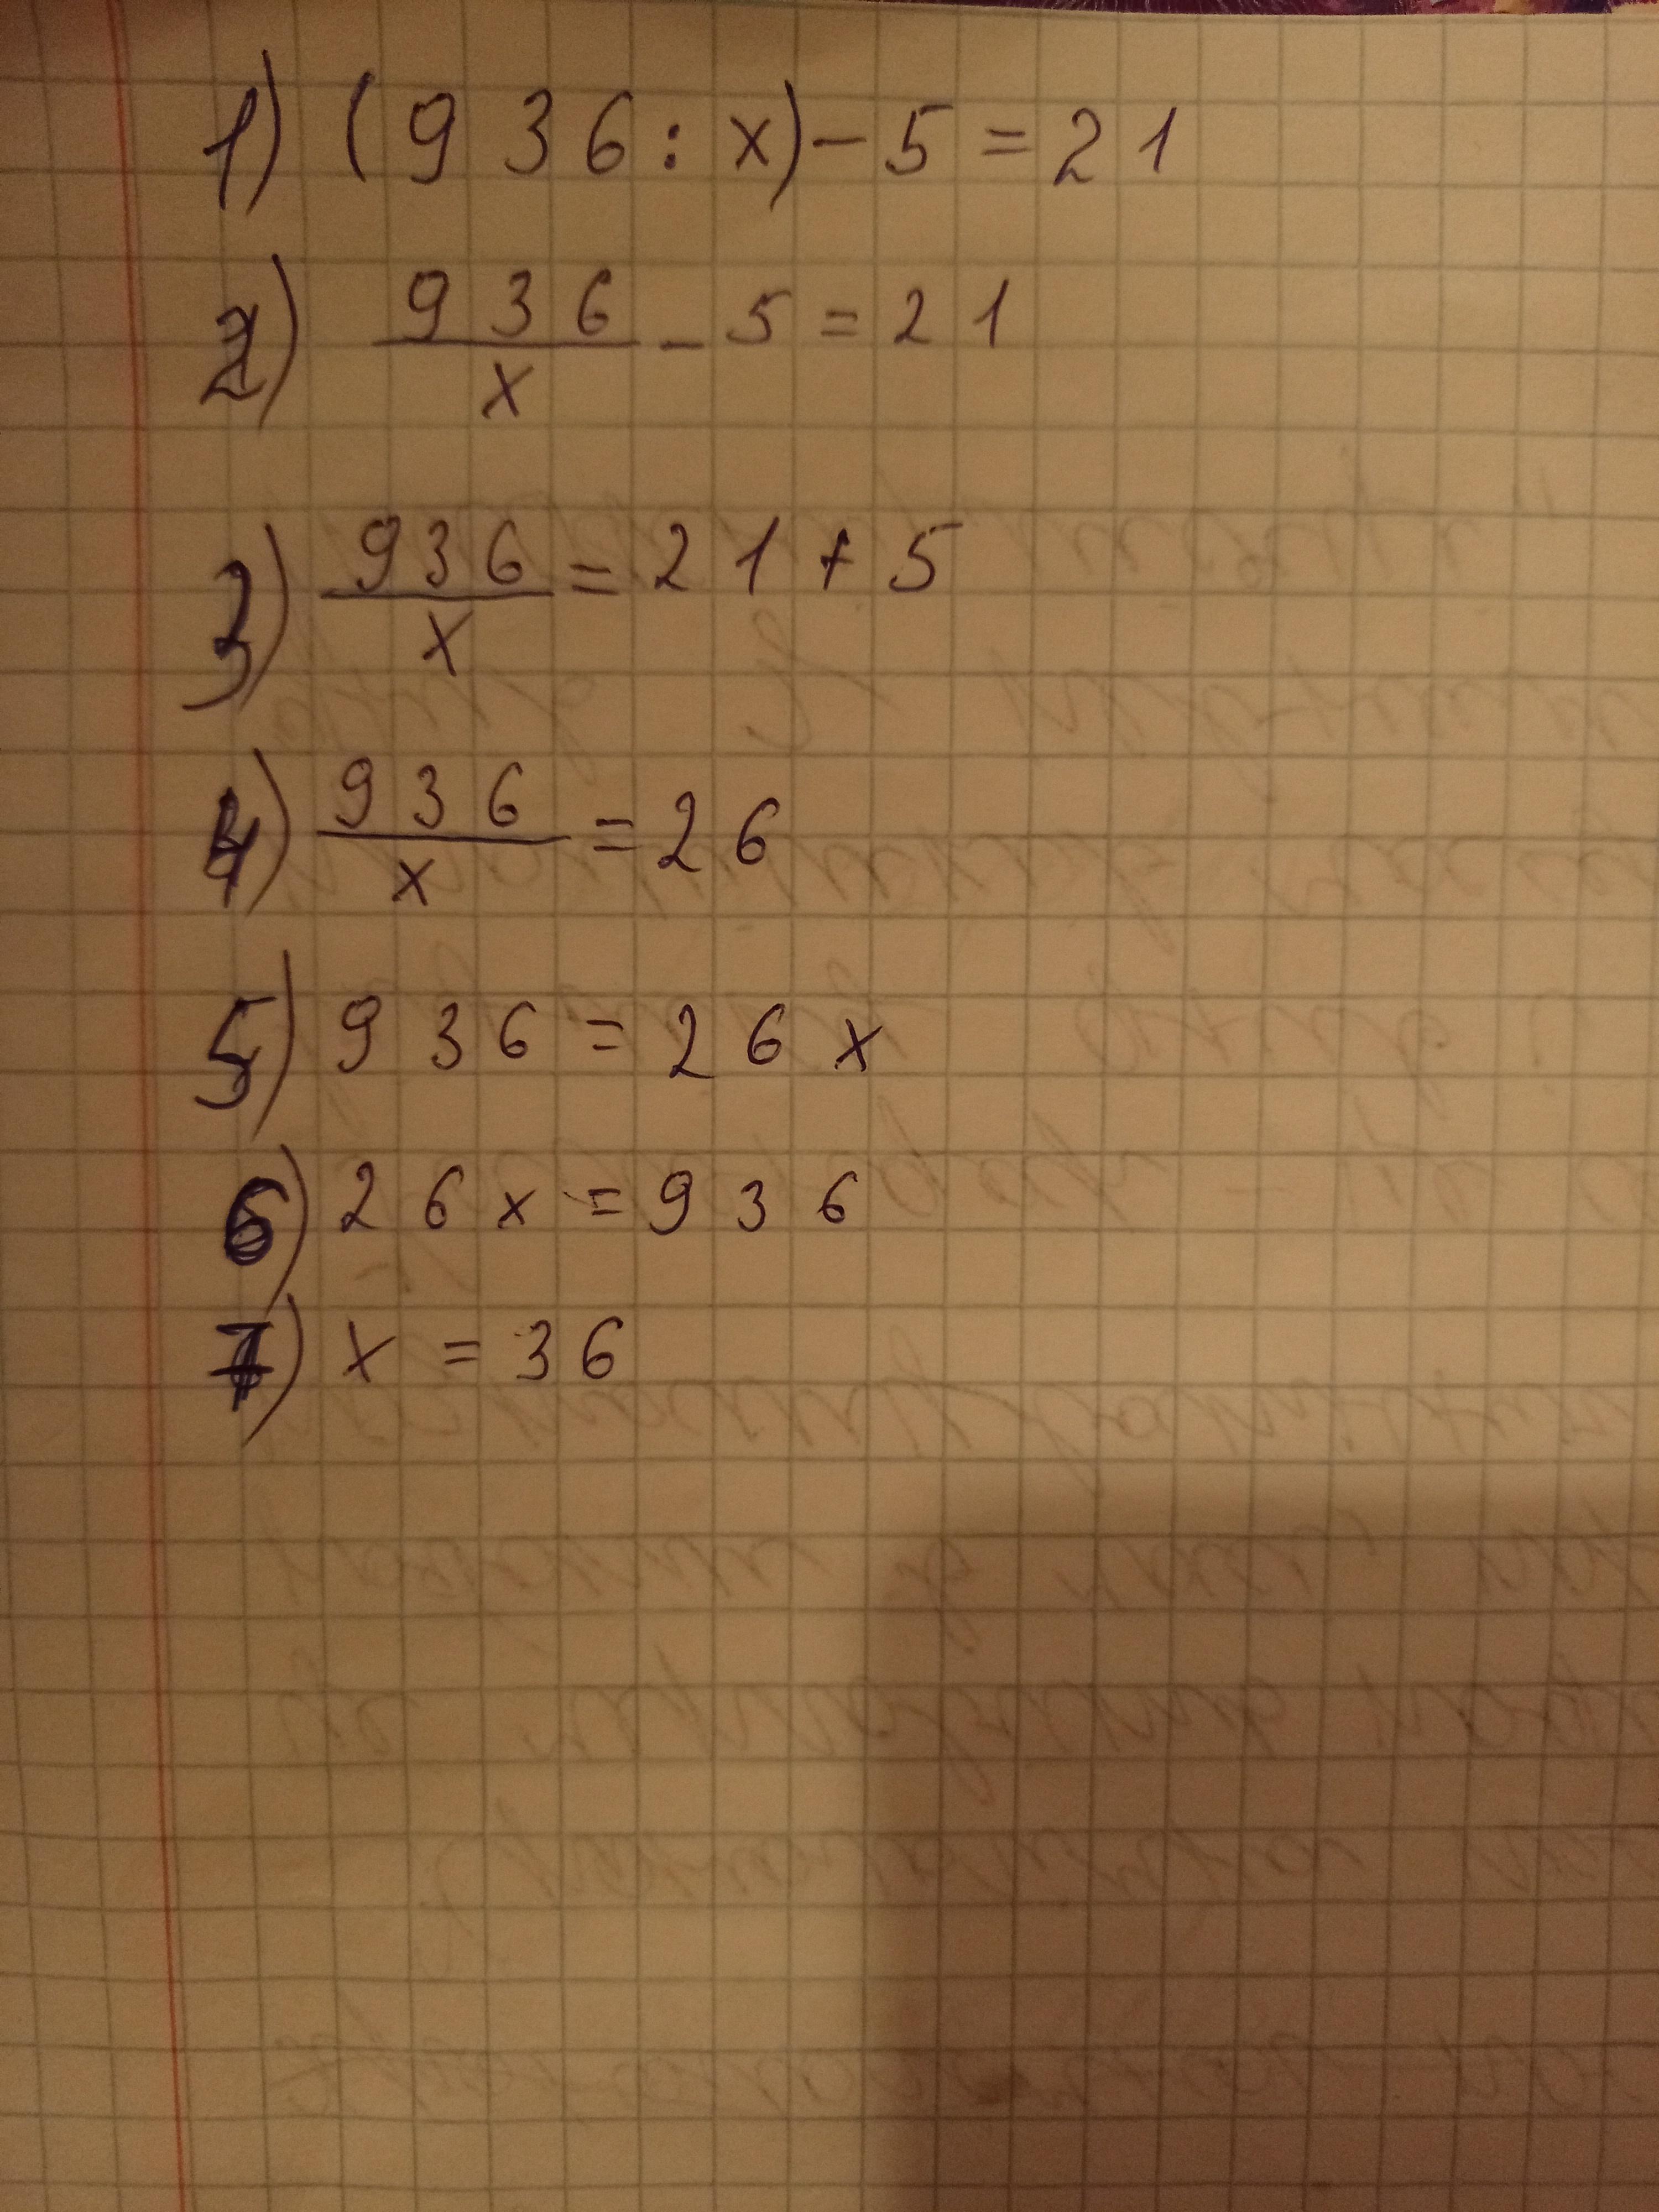 1) (936 : x) - 5 = 21
2) 936/x - 5 = 21
3) 936/x = 21 + 5
4) 936/x = 26
5) 936 = 26x
6) 26x = 936
7) x = 36